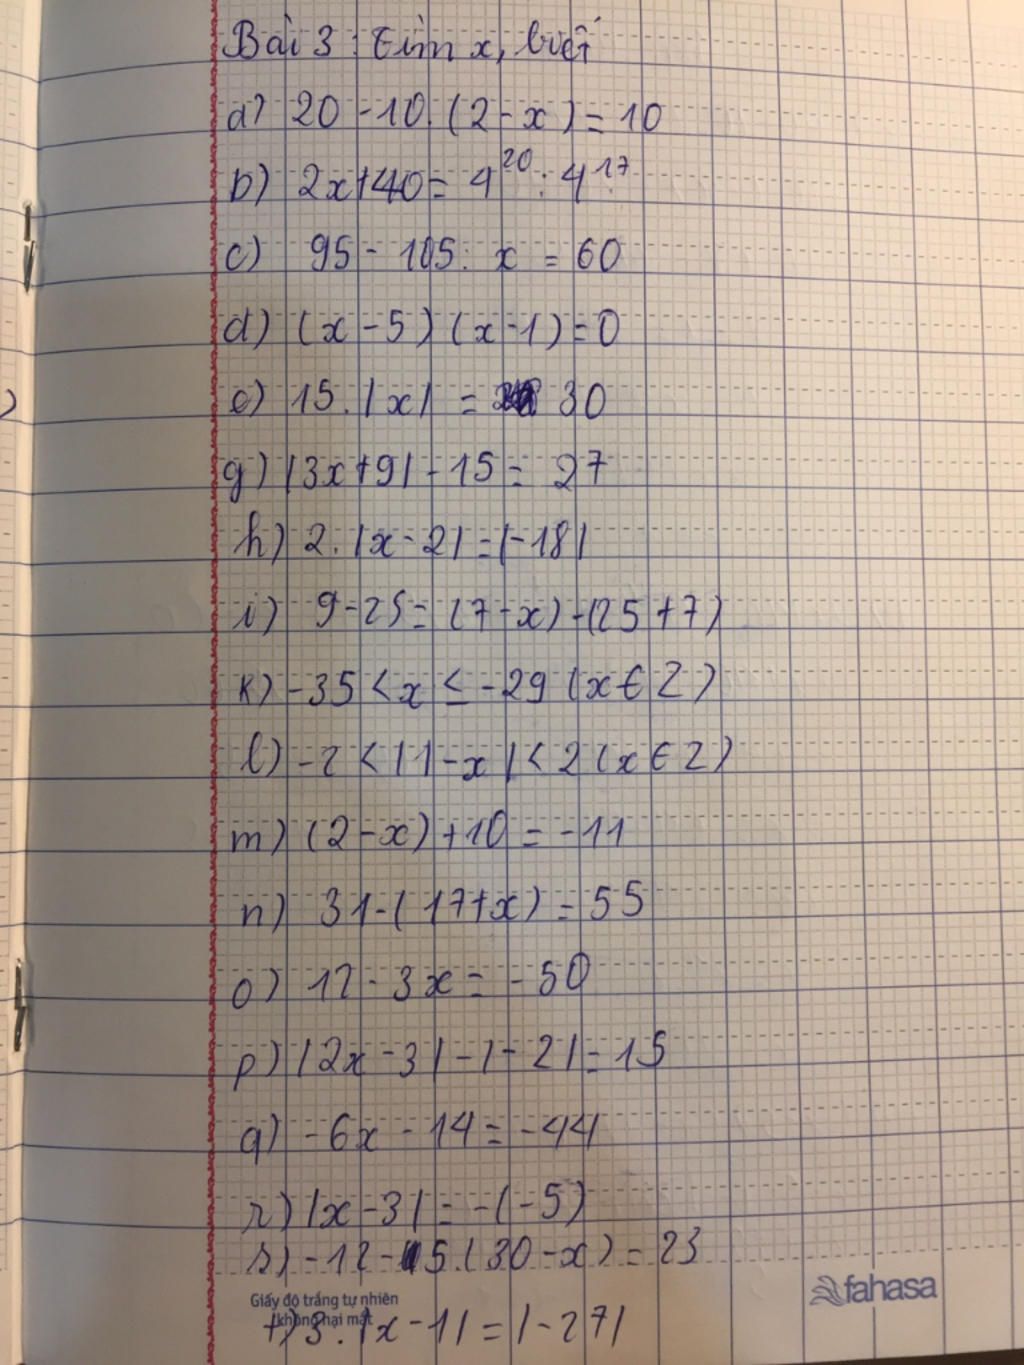 Bài 3 : Tìm x, biết
a) 20 - 10. (2 - x) = 10
b) 2x + 40 = 4²⁰ : 4¹⁷
c) 95 - 105 : x = 60
d) (x - 5) (x - 1) = 0
e) 15. |x| = 30
g) |3x + 9| - 15 = 27
h) 2. |x - 2| = |-18|
i) 9 - 25 = (7 - x) - (25 + 7)
k) -35 < x ≤ -29 (x ∈ Z)
l) -2 < |1 - x| < 2 (x ∈ Z)
m) (2 - x) + 10 = -11
n) 31 - (17 + x) = 55
o) 12 - 3x = -50
p) |2x - 3| - |-2| = 15
q) -6x - 14 = -44
r) |x - 3| = -(-5)
s) -12 - 5. (30 - x) = 23
fahasa
Giấy độ trắng tự nhiên
không hại mắt
t) 3. |x - 1| = |-27|